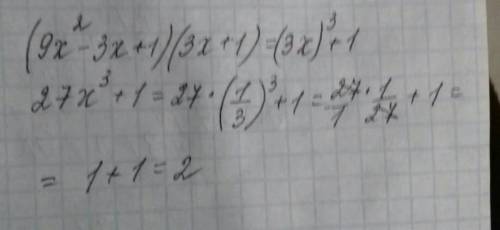 (9x²-3x+1)(3x+1)=(3x)³+1
27x³+1=27·(1/3)³+1=27/1·1/27+1=
= 1+1=2